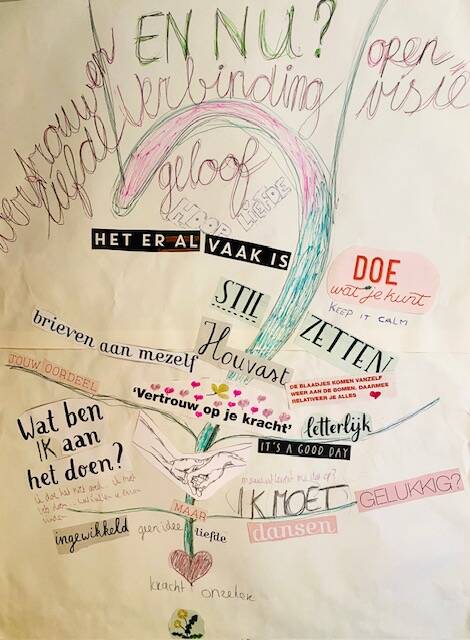 EN NU?
vertrouwen
liefde
verbinding
open
visie
geloof
HOOP LIEFDE
HET ER AL VAAK IS
DOE
wat je kunt
KEEP IT CALM
STIL
ZETTEN
brieven aan mezelf
Houvast
JOUW OORDEEL
'Vertrouw op je kracht'
DE BLAADJES KOMEN VANZELF
WEER AAN DE BOMEN. DAARMEE
RELATIVEER JE ALLES
Wat ben
IK aan
het doen?
letterlijk
IT'S A GOOD DAY
IK MOET
GELUKKIG?
MAAR
ingewikkeld
geen idee
liefde
dansen
kracht
onzeker